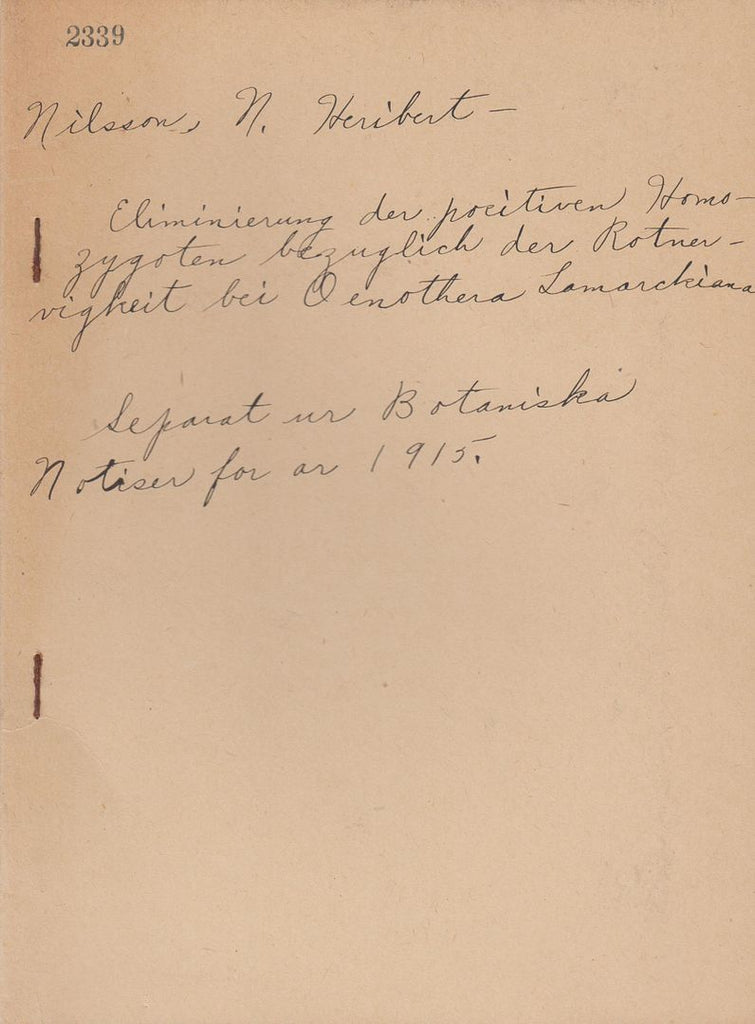 2339
Nilsson, N. Heribert –
Eliminierung der positiven Homo-
zygoten bezuglich der Rotner-
vigkeit bei Oenothera Lamarckiana
Separat ur Botaniska
Notiser for ar 1915.